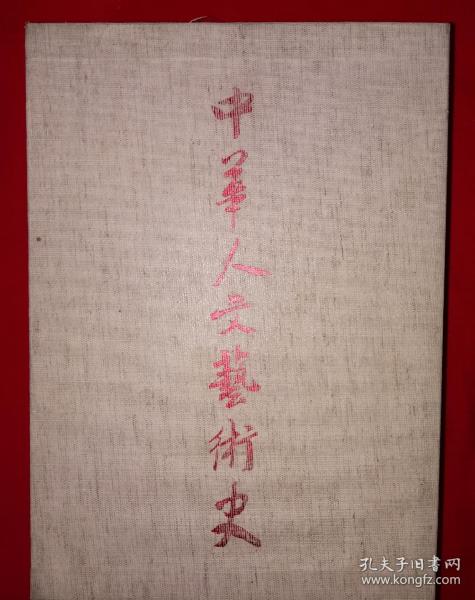 中華人文藝術史
孔夫子旧书网
www.kongfz.com